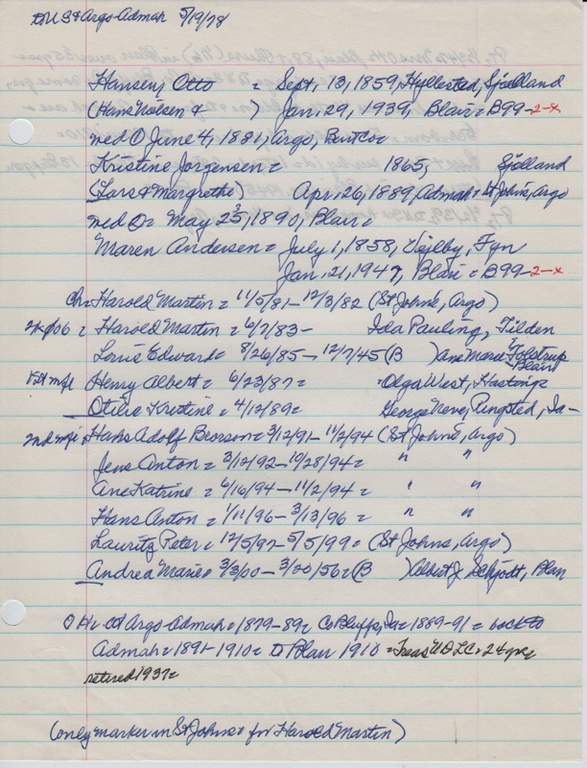 St Argo-Admah 5/19/78
Hansen, Otto = Sept. 13, 1859, Hyllested, Sjælland
(Hans Nielsen & ) Jan. 29, 1939, Blair = B99-2-x
med ① June 4, 1881, Argo, Burt Co=
Kristine Jorgensen = 1865, Sjælland
(Lars & Margrethe) Apr. 26, 1889, Admah = St Johns, Argo
med ②= May 23, 1890, Blair=
Maren Andersen = July 1, 1858, Vejlby, Fyn
Jan. 21, 1947, Blair = B99-2-x
Ch= Harold Martin = 11/5/81-12/3/82 (St Johns, Argo)
Harold Martin = 6/7/83- Ida Pauling, Tilden
Louis Edward = 8/26/85-12/7/45 (B ) Ane Marie Tolstrup Blair
1st mfe Henry Albert = 6/23/87= Olga West, Hastings
Otilia Kristine = 4/12/89= George Neve, Ringsted, Ia-
2nd mfe: Hans Adolf Brorson = 3/12/91-11/2/94 (St Johns, Argo)
Jens Anton = 3/12/92-10/28/94= " "
Ane Katrine = 6/16/94-11/2/94 = " "
Hans Anton = 1/11/96-3/13/96 = " "
Lauritz Peter = 12/5/97-5/5/99= (St Johns, Argo)
Andrea Marie= 3/3/00-3/20/56= (B ) Albert J. Schjodt, Blair
O H= at Argo-Admah = 1879-89= Co Bluffs, Ia = 1889-91 = back to
Admah = 1891-1910 = to Blair 1910 = Treas UDLC = 24 yrs
retired 1937=
(only marker in St Johns = for Harold Martin)